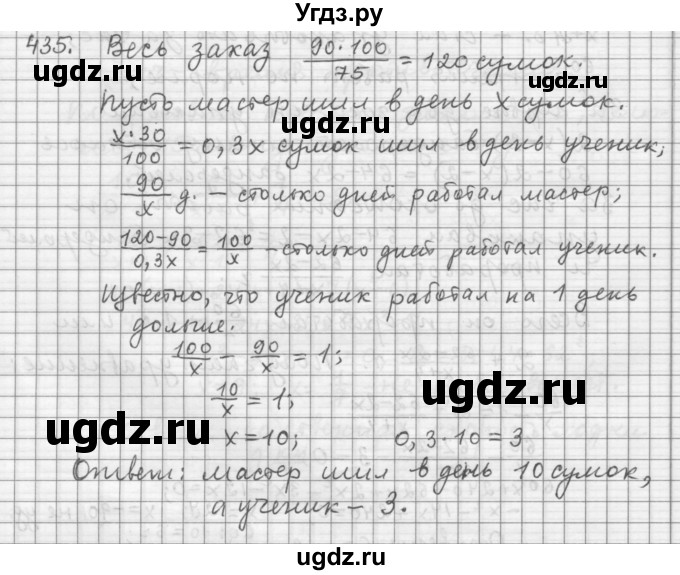 Угдз.ру
435. Весь заказ 90·100/75 = 120 сумок.
Пусть мастер шил в день x сумок.
x·30/100 = 0,3x сумок шил в день ученик;
90/x д. – столько дней работал мастер;
120-90/0,3x = 100/x – столько дней работал ученик.
Известно, что ученик работал на 1 день
дольше.
100/x - 90/x = 1;
10/x = 1;
x = 10; 0,3·10 = 3
Ответ: мастер шил в день 10 сумок,
а ученик – 3.
ugdz.ru
ugdz.ru
ugdz.ru
ugdz.ru
ugdz.ru
ugdz.ru
ugdz.ru
ugdz.ru
ugdz.ru
ugdz.ru